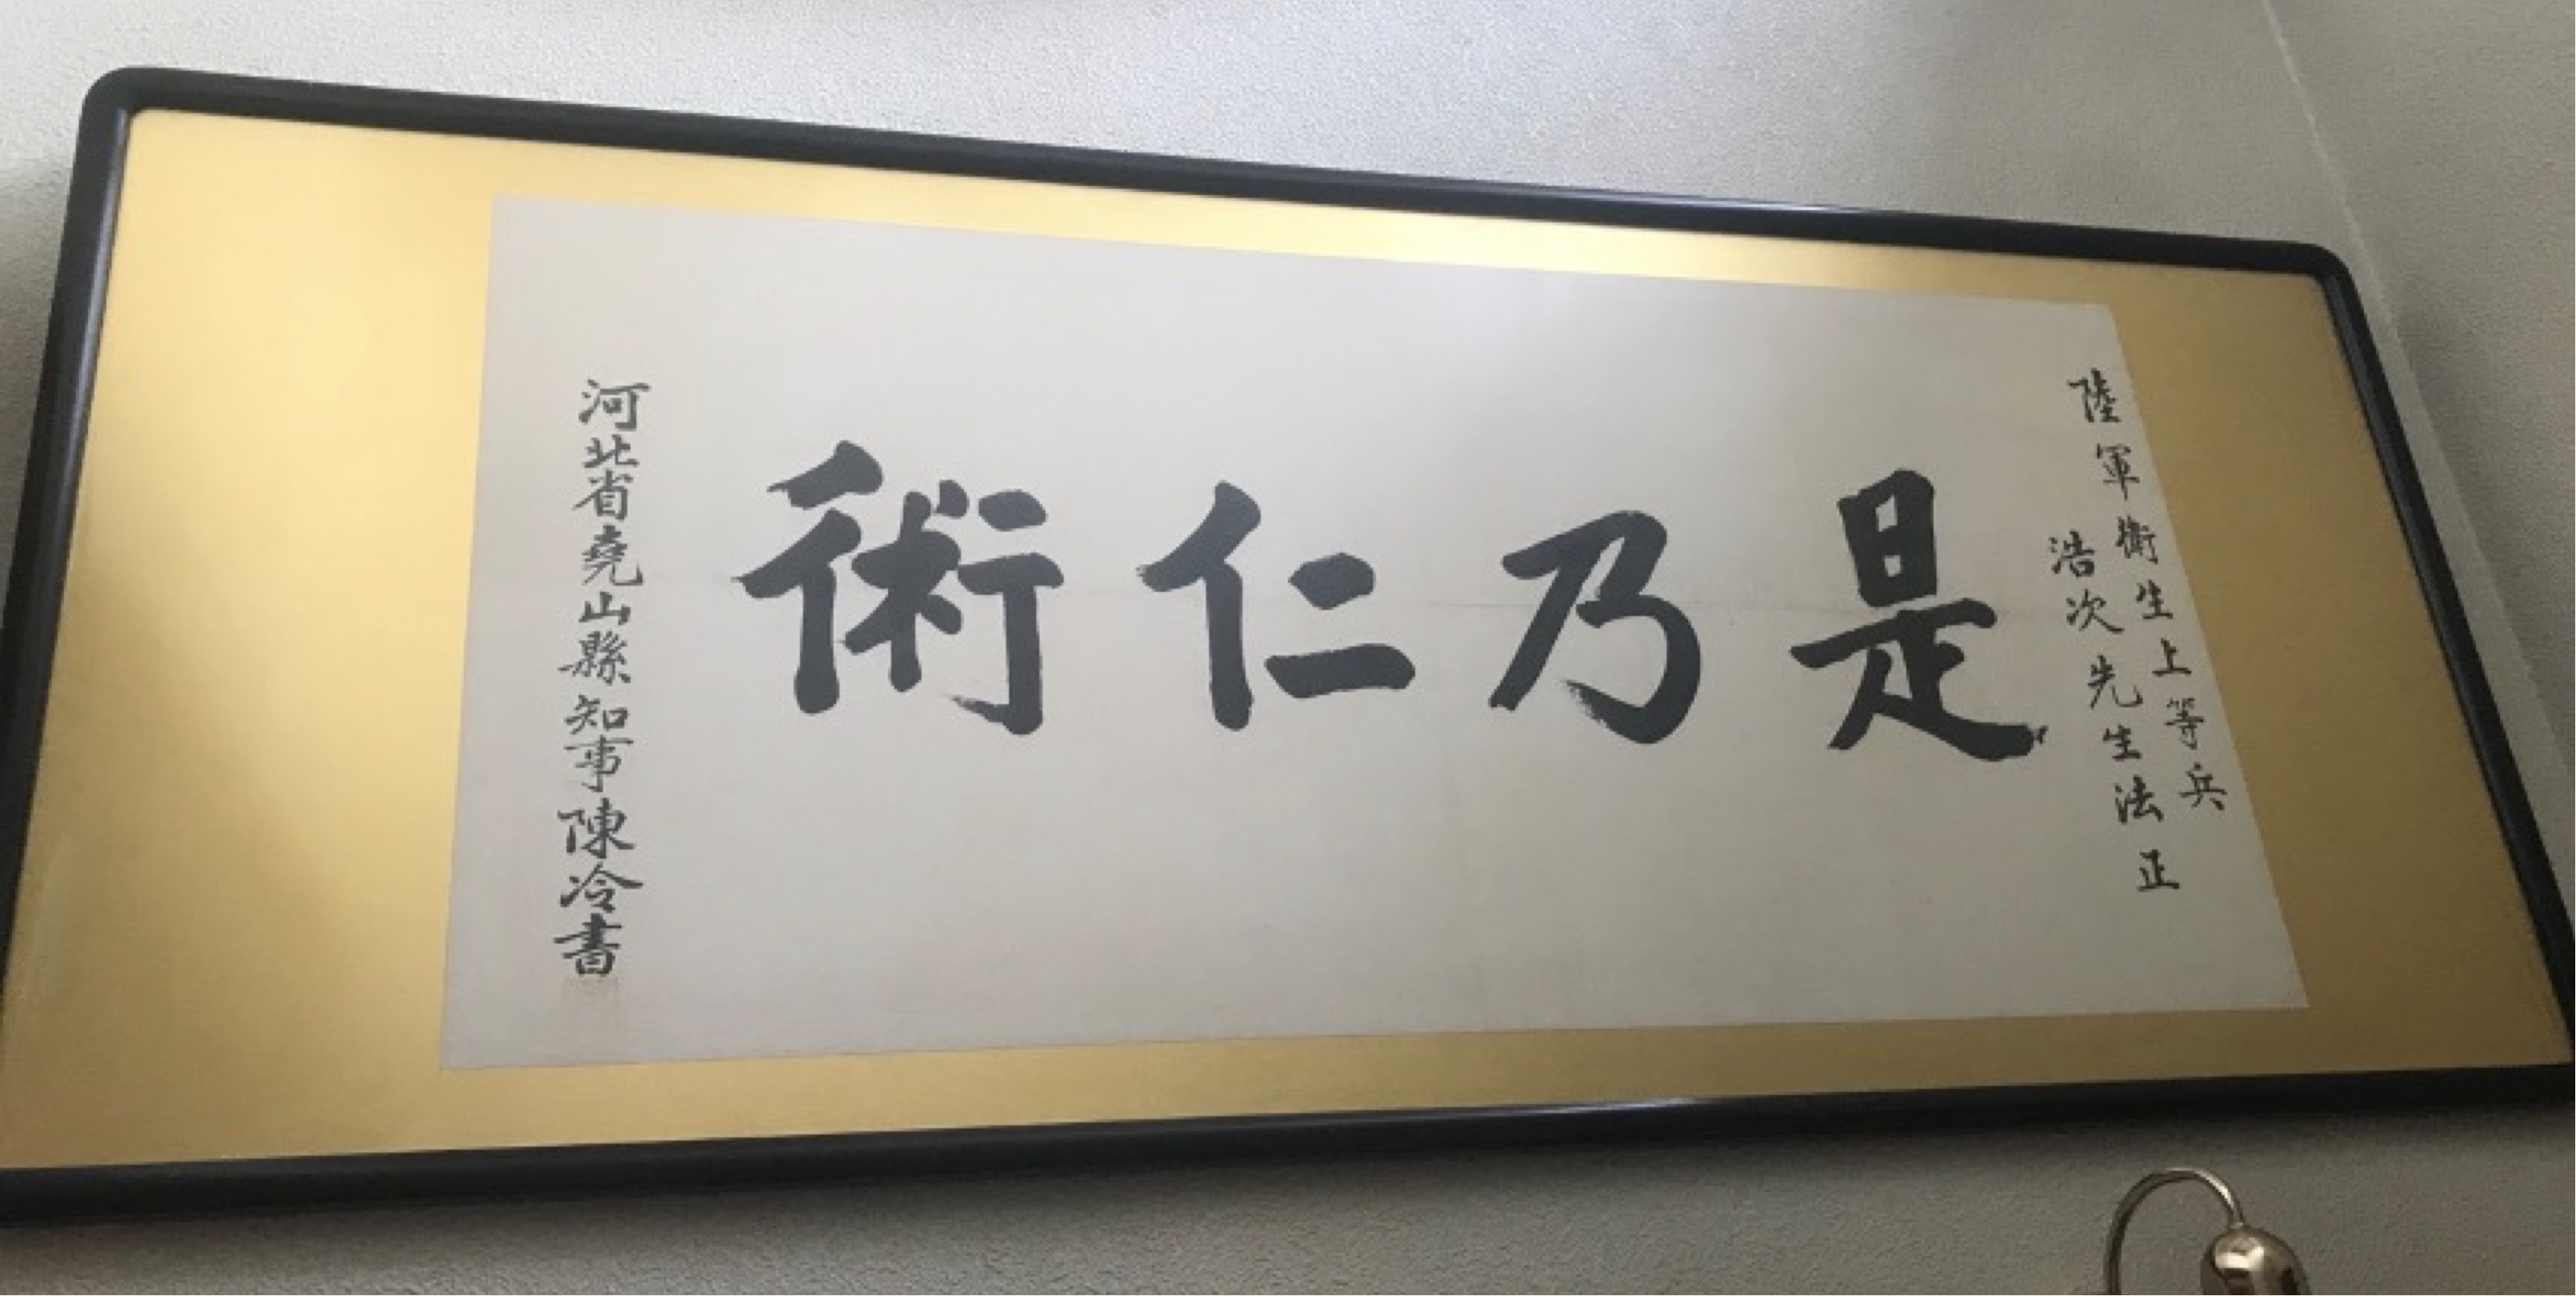 陸軍衛生上等兵
浩次先生法正
是乃仁術
河北省堯山縣知事陳冷書